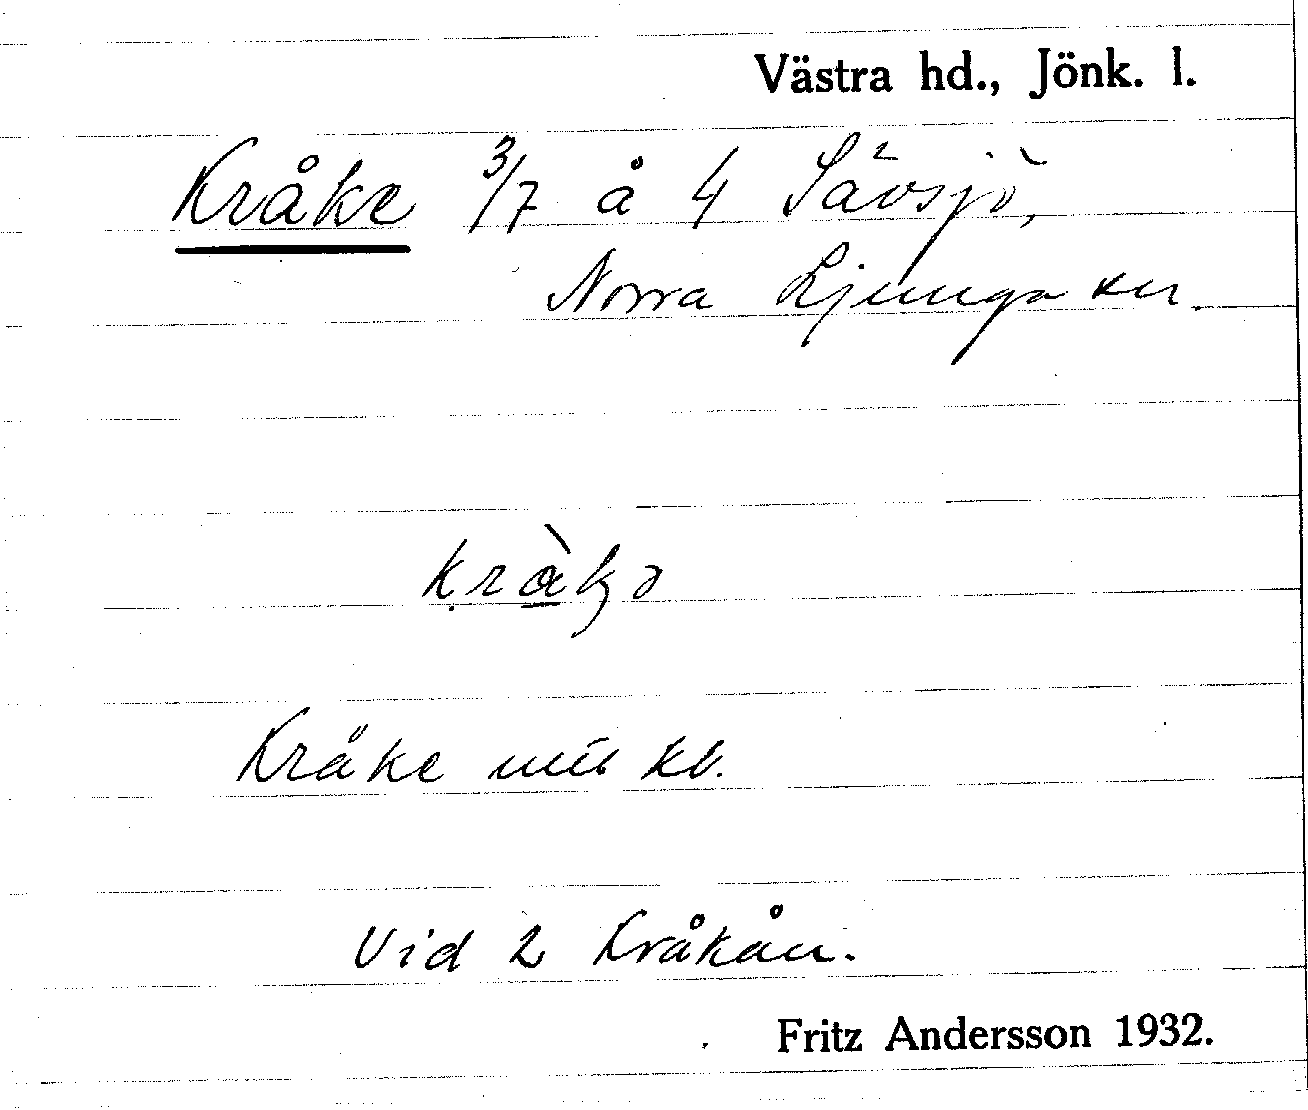 Västra hd., Jönk. l.
Kråke 3/7 å 4 Sävsjö,
Norra Ljunga sn.
Kråke mtb kb.
Vid 2 Kråkån.
Fritz Andersson 1932.